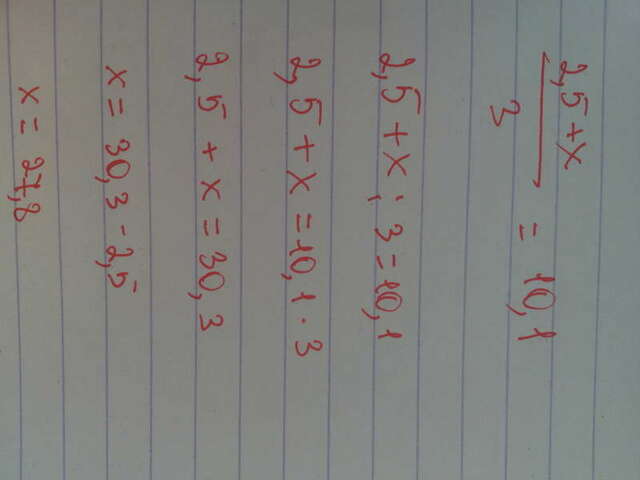 2,5+x
3
= 10,1
2,5+x : 3=10,1
2,5+x =10,1 · 3
2,5 + x = 30,3
x = 30,3-2,5
x = 27,8